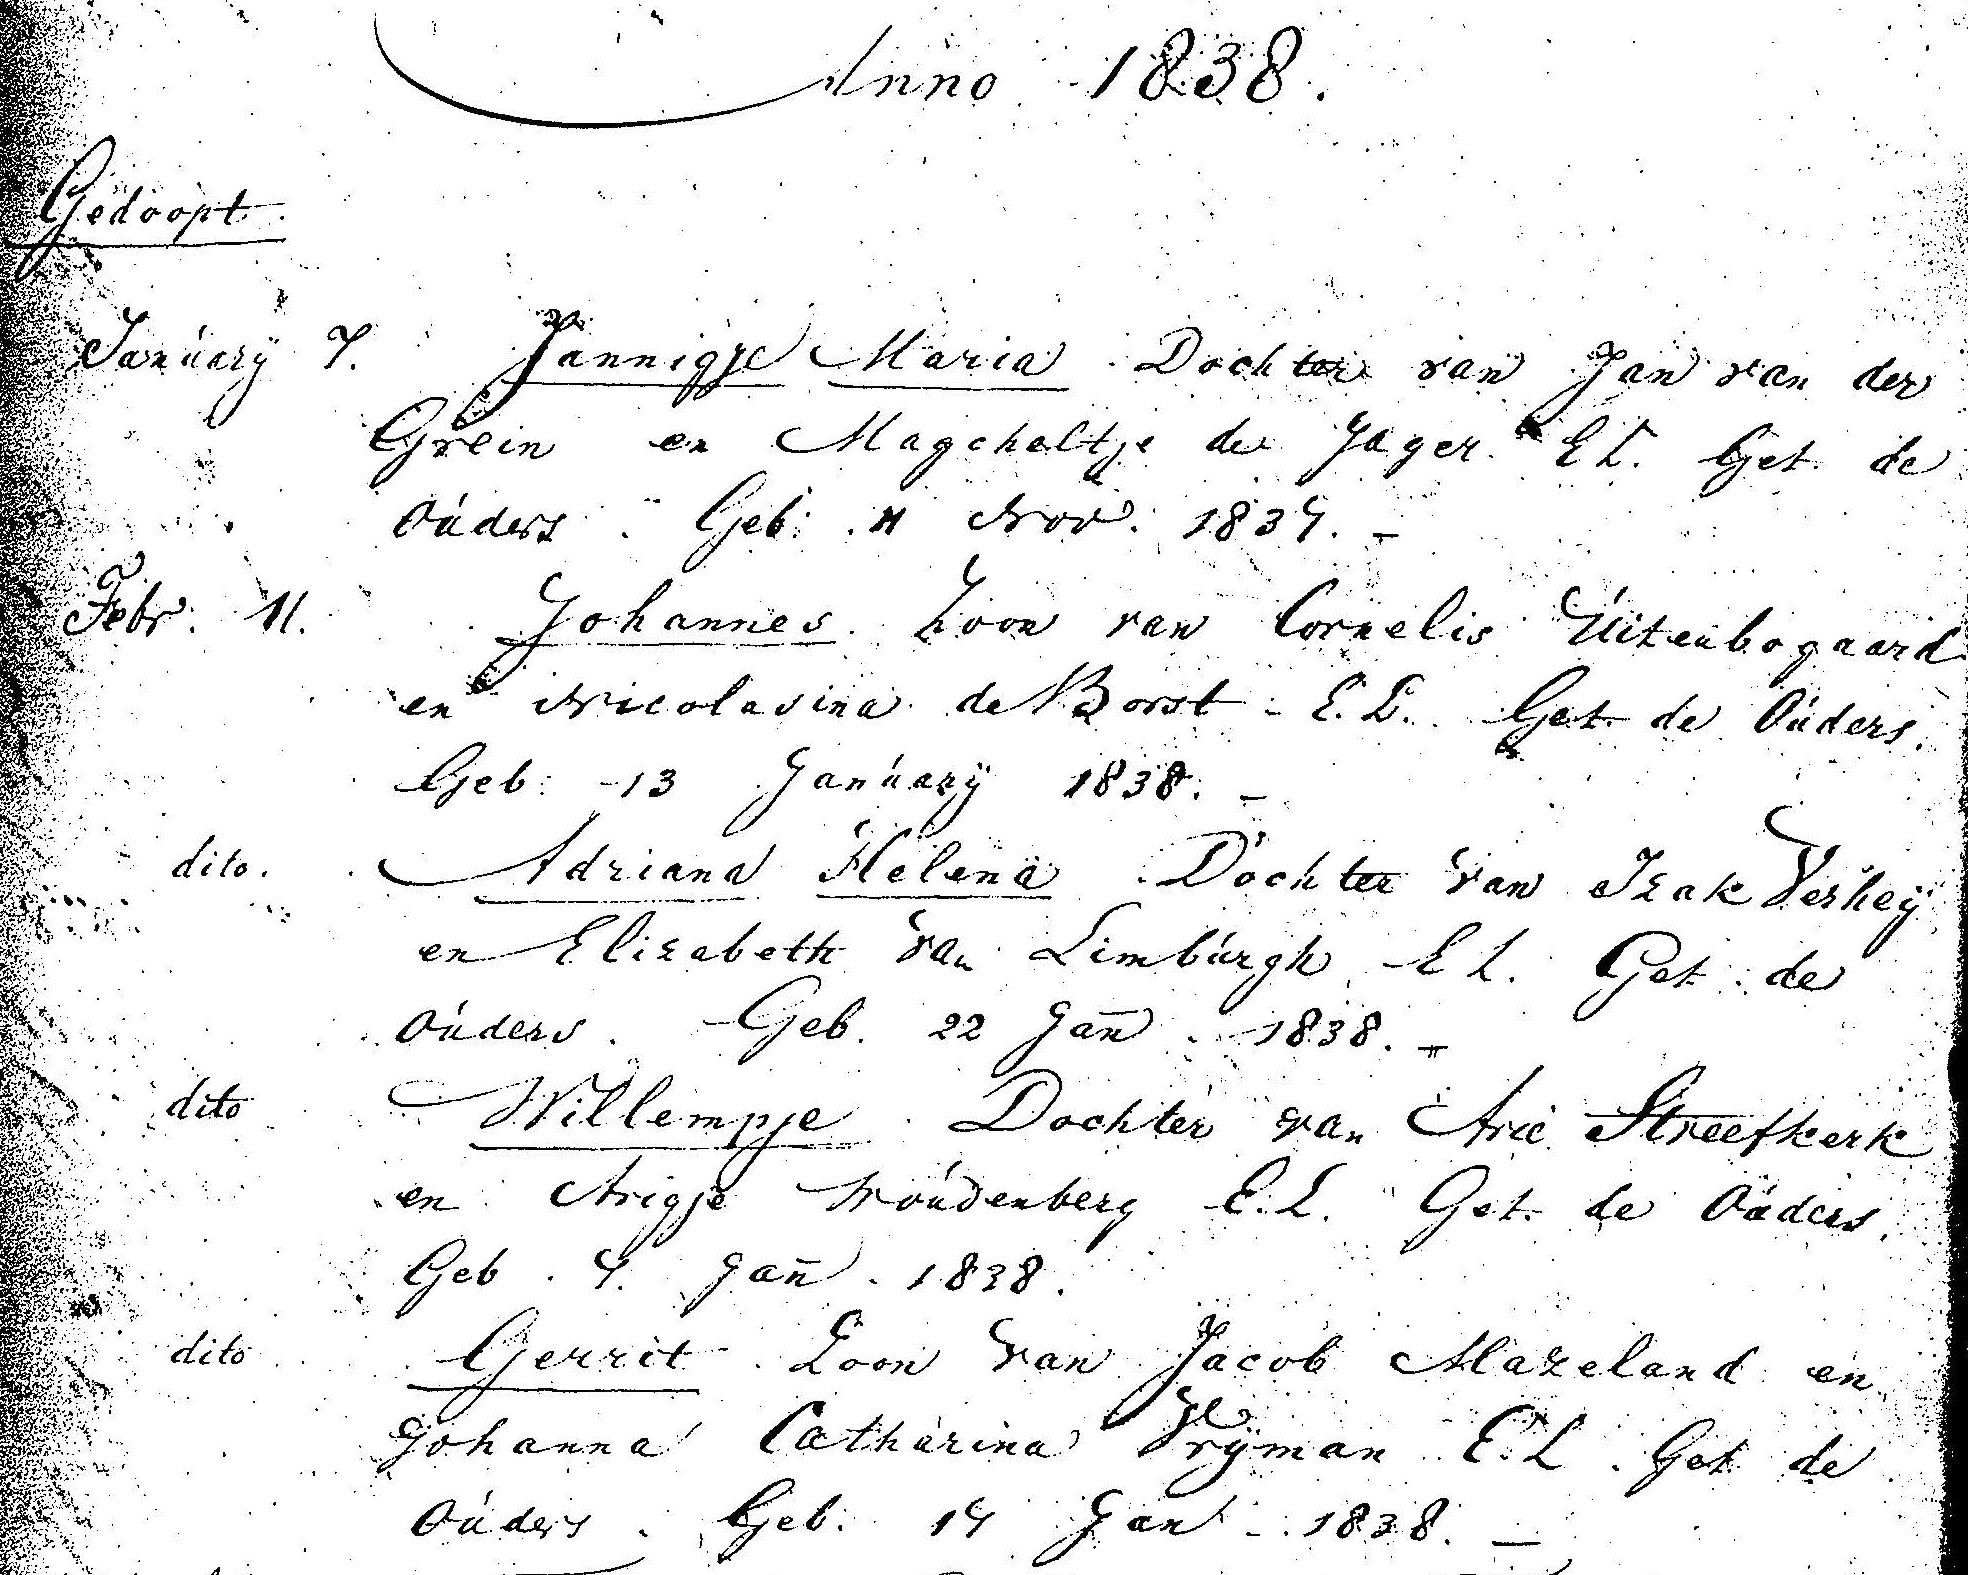 Anno 1838.
Gedoopt.
Januarij 7. Jannigje Maria Dochter van Jan van der
Grein en Magcheltje de Jager. E L. Get. de
Ouders. Geb: 11 Nov. 1837. –
Febr. 11. Johannes. Zoon van Cornelis Uitenbogaard
en Nicolasina de Borst – E. L. Get. de Ouders.
Geb: 13 January 1838. –
dito. Adriana Helena Dochter van Izak Verheÿ
en Elizabeth van Limburgh E L. Get. de
Ouders. Geb. 22 Jan̄. 1838. –
dito Willempje Dochter van Arie Streefkerk
en Arigje Woudenberg E. L. Get. de Ouders.
Geb. 7. Jan̄. 1838.
dito Gerrit Zoon van Jacob Mazeland en
Johanna Catharina Vrÿman E. L. Get de
Ouders. Geb. 17 Jan 1838. –